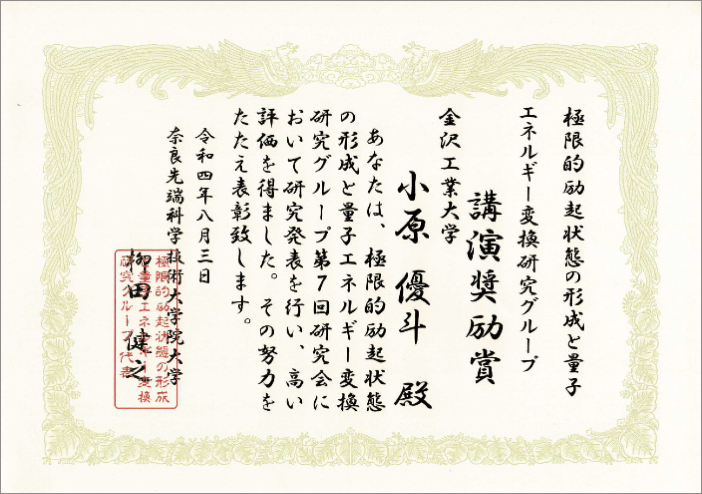 極限的励起状態の形成と量子
エネルギー変換研究グループ
講演奨励賞
金沢工業大学
小原 優斗 殿
あなたは、極限的励起状態
の形成と量子エネルギー変換
研究グループ第7回研究会に
おいて研究発表を行い、高い
評価を得ました。その努力を
たたえ表彰致します。
令和四年八月三日
奈良先端科学技術大学院大学
柳田 健之
極限的励起状態の形成
と量子エネルギー変換
研究グループ代表